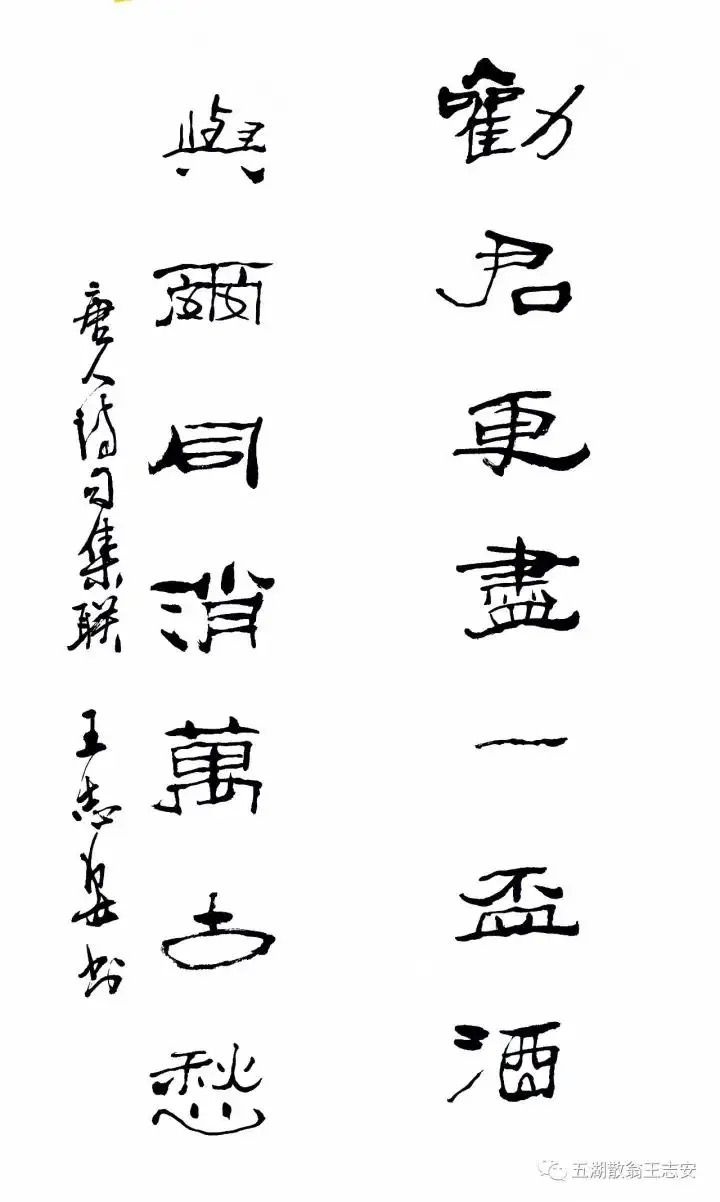 勸君更盡一盃酒
與爾同消萬古愁
唐人詩句集联 王志安书
五湖散翁王志安